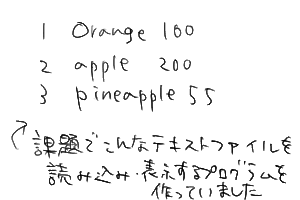 1 Orange 100
2 apple 200
3 pineapple 55
↗課題でこんなテキストファイルを
読み込み・表示するプログラムを
作っていました